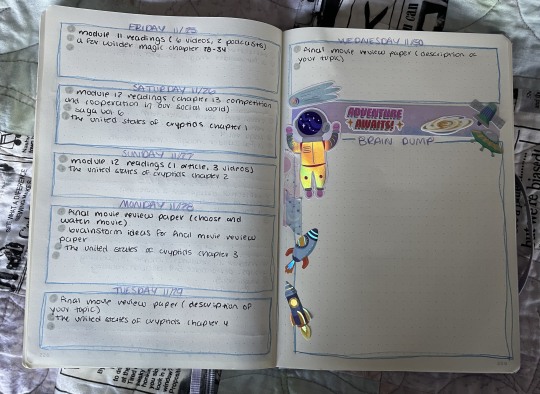 FRIDAY 11/25
module 11 readings (6 videos, 2 podcasts)
a few wilder magic chapter 18-34
SATURDAY 11/26
module 12 readings (chapter 13 competition
and cooperation in our social world)
saga vol 6
the united states of cryptids chapter 1
SUNDAY 11/27
module 12 readings (1 article, 3 videos)
the united states of cryptids chapter 2
MONDAY 11/28
final movie review paper (choose and
watch movie)
brainstorm ideas for final movie review
paper
the united states of cryptids chapter 3
TUESDAY 11/29
final movie review paper (description of
your topic)
the united states of cryptids chapter 4
WEDNESDAY 11/30
final movie review paper (description of
your topic)
ADVENTURE
AWAITS!
BRAIN DUMP